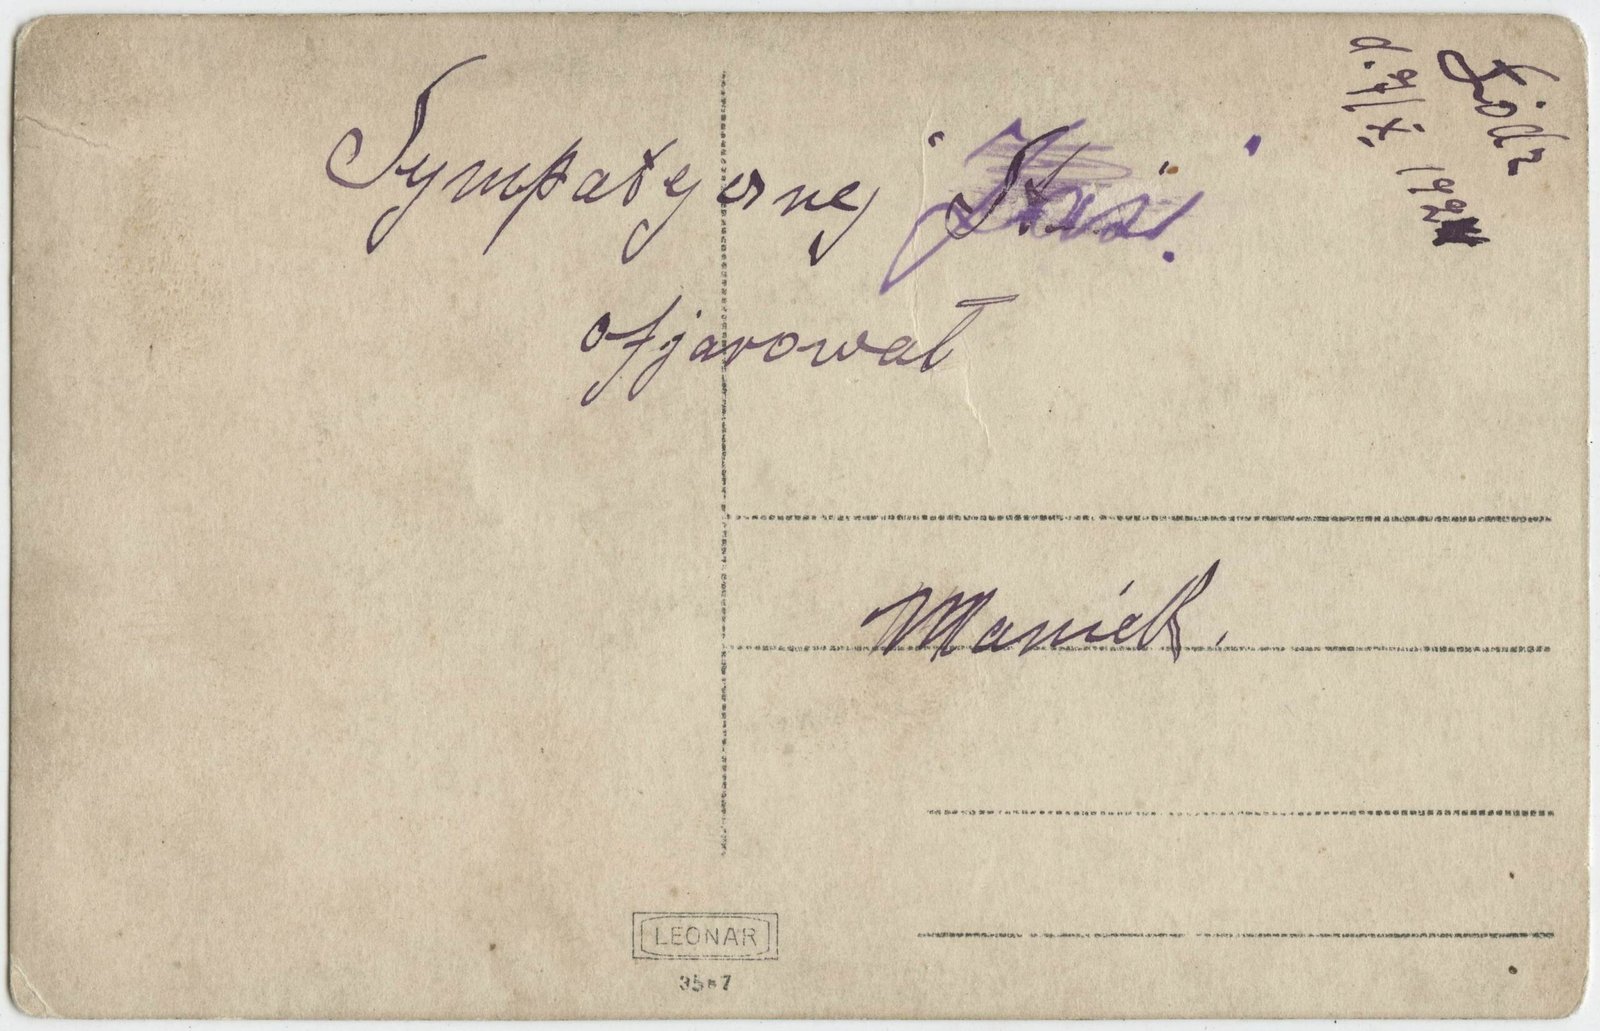 Łódź
d. 9/X 192
Sympatycznej
ofjarował
Maniek.
LEONAR
35*7